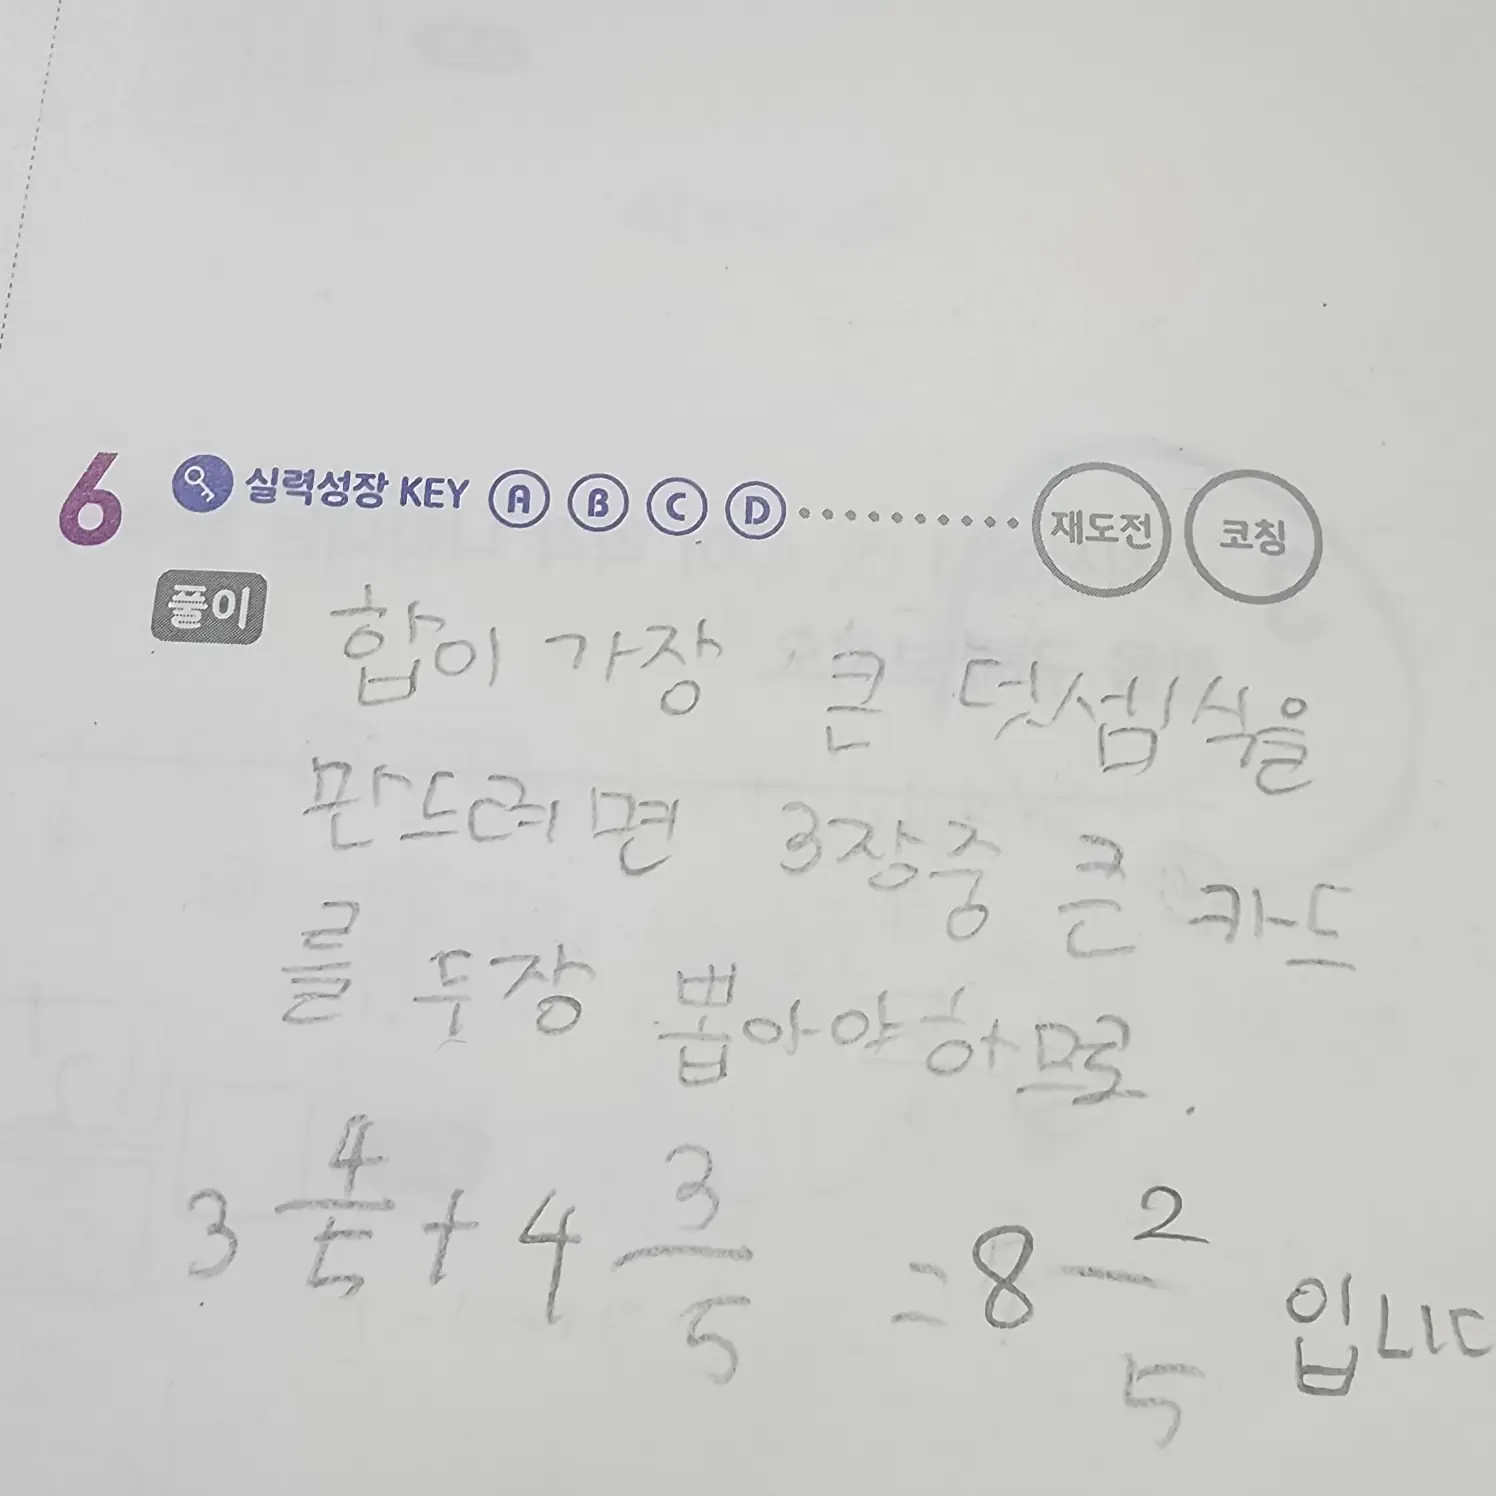 6 실력성장 KEY A B C D 재도전 코칭
풀이 합이 가장 큰 덧셈식을
만드려면 3장중 큰 카드
를 두장 뽑아야하므로.
3 4/5 + 4 3/5 = 8 2/5 입니다